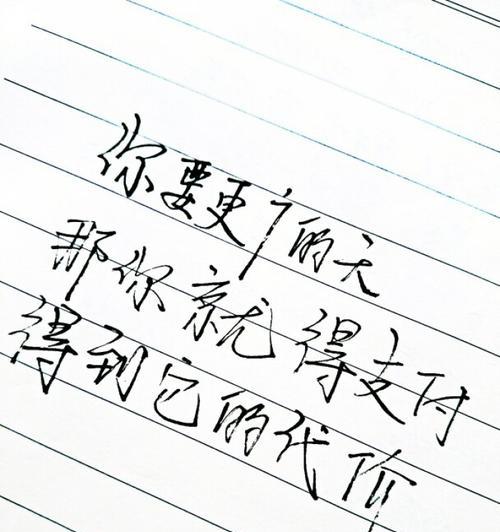 你要更广的天
那你就得支付
得到它的代价